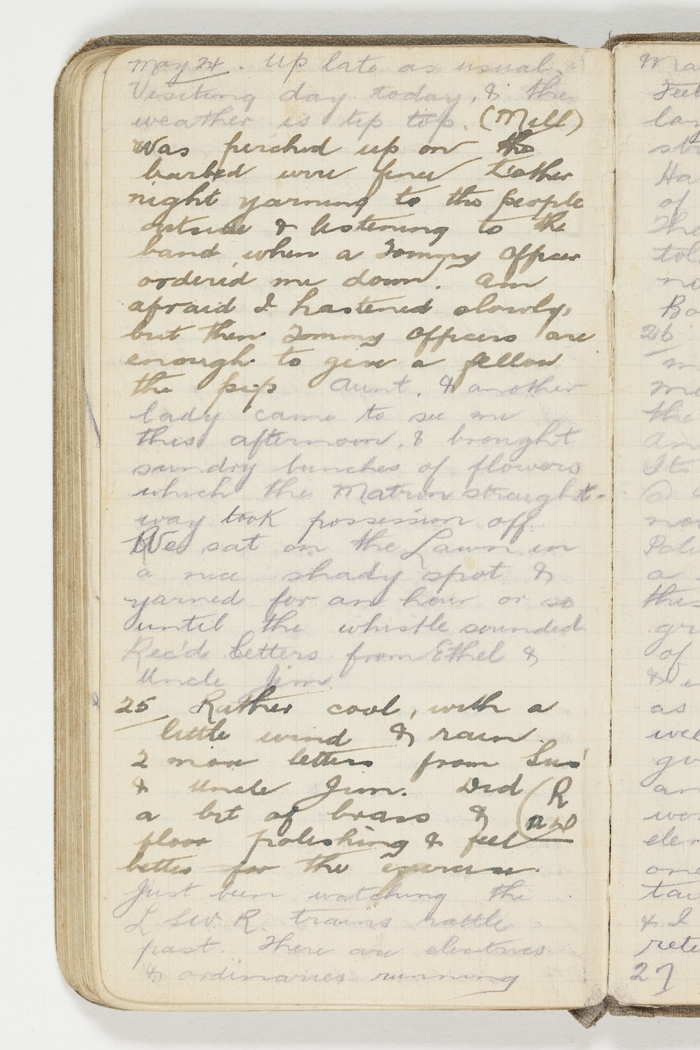 May 24. Up late as usual.
Visiting day today, & the
weather is tip top. (Mill)
Was perched up on the
barbed wire fence tother
night yarning to the people
outside & listening to the
band when a Tommy Officer
ordered me down. Am
afraid I hastened slowly,
but then Tommy Officers are
enough to give a fellow
the pip Aunt, & another
lady came to see me
this afternoon, & brought
sundry bunches of flowers
which the Matron straight-
way took possession off.
We sat on the Lawn in
a nice shady spot &
yarned for an hour or so
until the whistle sounded
Rec'd letters from Ethel &
Uncle Jim.
25 Ruther cool, with a
little wind & rain.
2 more letters from Sus'
& Uncle Jim. Did (R
a bit of brass & and
floor polishing & feel
better for the exercise.
Just been watching the
L & S.W. R. trains rattle
past. There are electrics
& ordinaries running
Ma
Feet
lan
sto
Ha
of
The
tol
no
Bo
26
m
me
the
an
Its
no
Poli
a
this
gr
of
& e
as
wee
go
an
wor
elen
one
tai
& I
rete
27